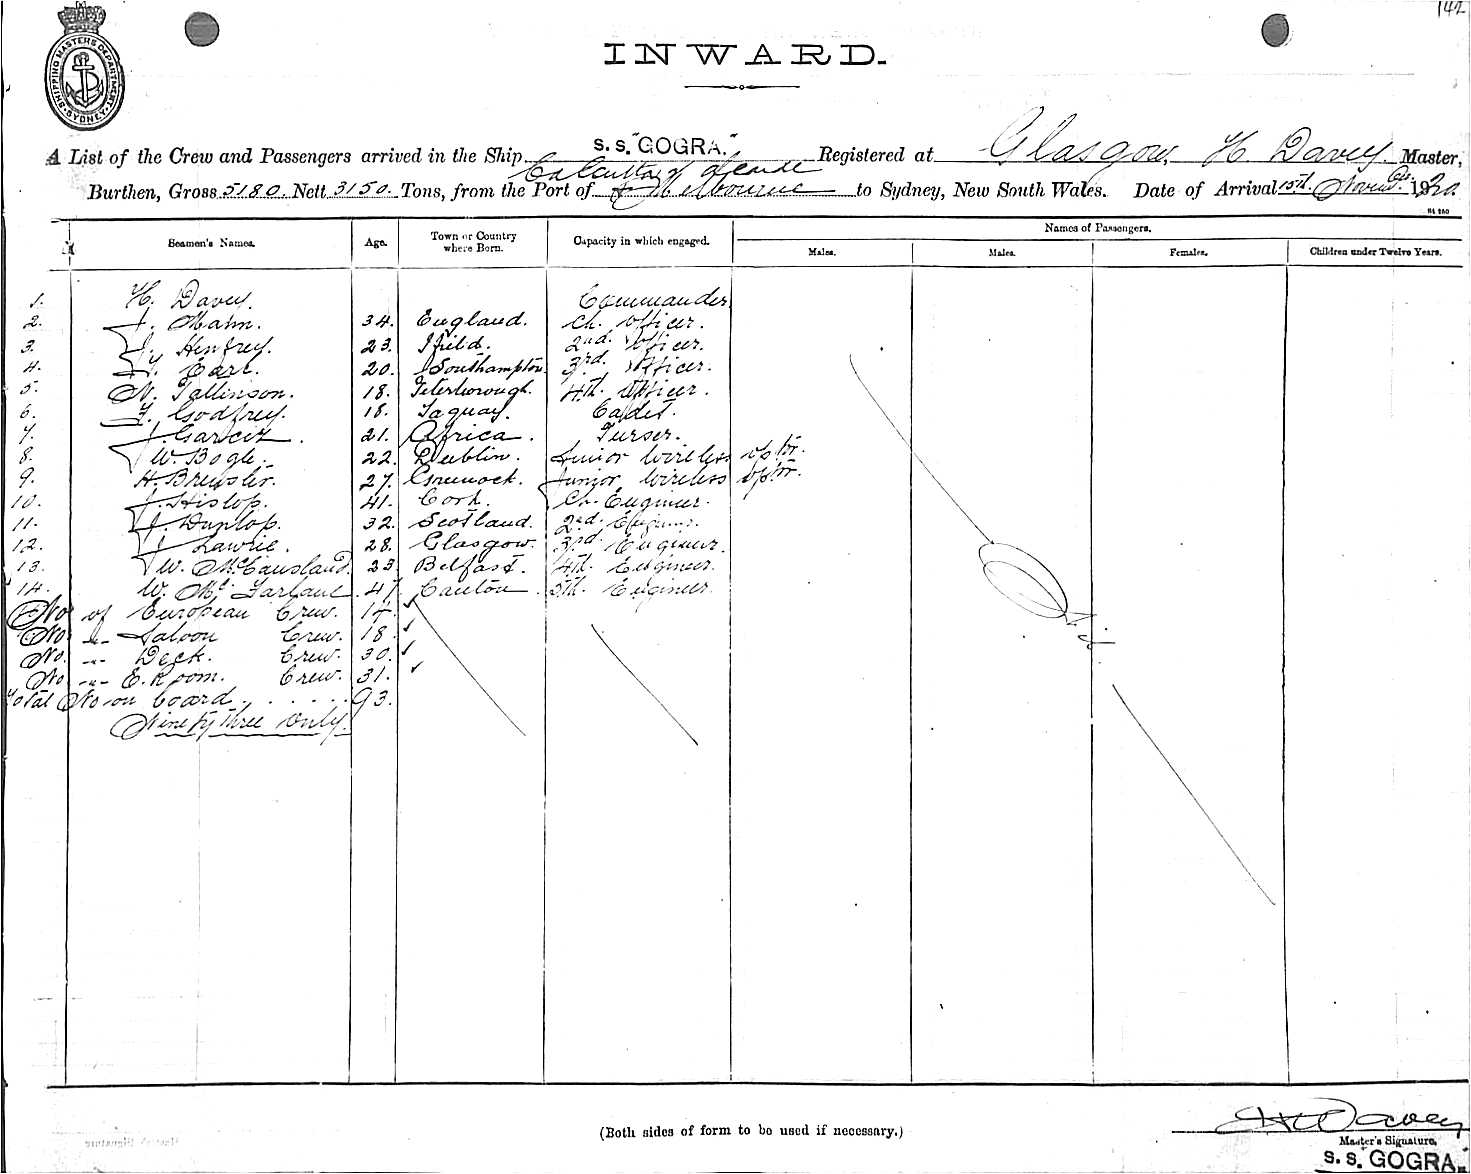 142
SHIPPING MASTERS DEPARTMENT
SYDNEY
INWARD.
A List of the Crew and Passengers arrived in the Ship S.S. "GOGRA." Registered at Glasgow, H. Davey. Master,
Burthen, Gross 5180. Nett 3150. Tons, from the Port of Calcutta & Melbourne to Sydney, New South Wales. Date of Arrival 15th. 1920
Seamen's Names. Age. Town or Country where Born. Capacity in which engaged. Names of Passengers.
Males. Males. Females. Children under Twelve Years.
1. H. Davey. Commander
2. J. Mann. 34. England. Ch. Officer.
3. J. Henfrey. 23. Ifield. 2nd. Officer.
4. Earl. 20. Southampton 3rd. Officer.
5. N. Tallinson. 18. Peterborough. 4th. Officer.
6. F. Godfrey. 18. Cadet.
7. J. Garsciz. 21. Africa. Purser.
8. W. Bogle. 22. Dublin. Senior Wireless optr.
9. H. Brewster. 27. Greenock. Junior Wireless optr.
10. J. Hislop. 41. Cork. Ch. Engineer.
11. J. Dunlop. 32. Scotland. 2nd. Engineer.
12. J. Lawrie. 28. Glasgow. 3rd. Engineer.
13. W. McCausland. 23. Belfast. 4th. Engineer.
14. W. McFarlane. 47. Canton. 5th. Engineer.
No of European Crew. 14
No " Saloon Crew. 18
No. " Deck. Crew. 30.
No " E. Room. Crew. 31.
Total No on board 93.
Ninety three only.
(Both sides of form to be used if necessary.)
H Davey
Master's Signature.
S.S. GOGRA.